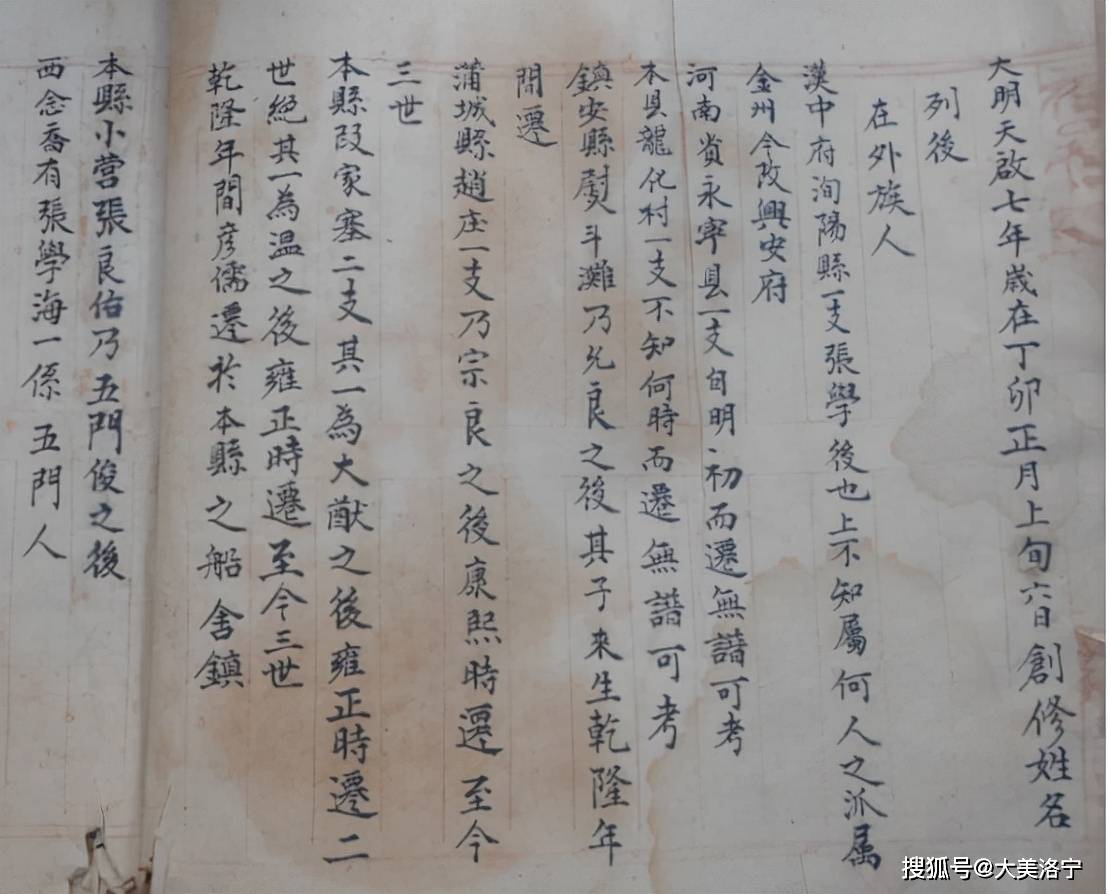 大明天啟七年歲在丁卯正月上旬六日創修姓名
列後
在外族人
漢中府洵陽縣一支張學後也上不知屬何人之派属
金州今改興安府
河南省永寧县一支自明初而遷無譜可考
本县龍化村一支不知何時而遷無譜可考
鎮安縣熨斗灘乃允良之後其子來生乾隆年
間遷
蒲城縣趙庄一支乃宗良之後康熙時遷至今
三世
本縣段家塞二支其一為大猷之後雍正時遷二
世絕其一為温之後雍正時遷至今三世
乾隆年間彦儒遷於本縣之船舍鎮
本縣小营張良佑乃五門俊之後
西念喬有張學海一係五門人
搜狐号@大美洛宁